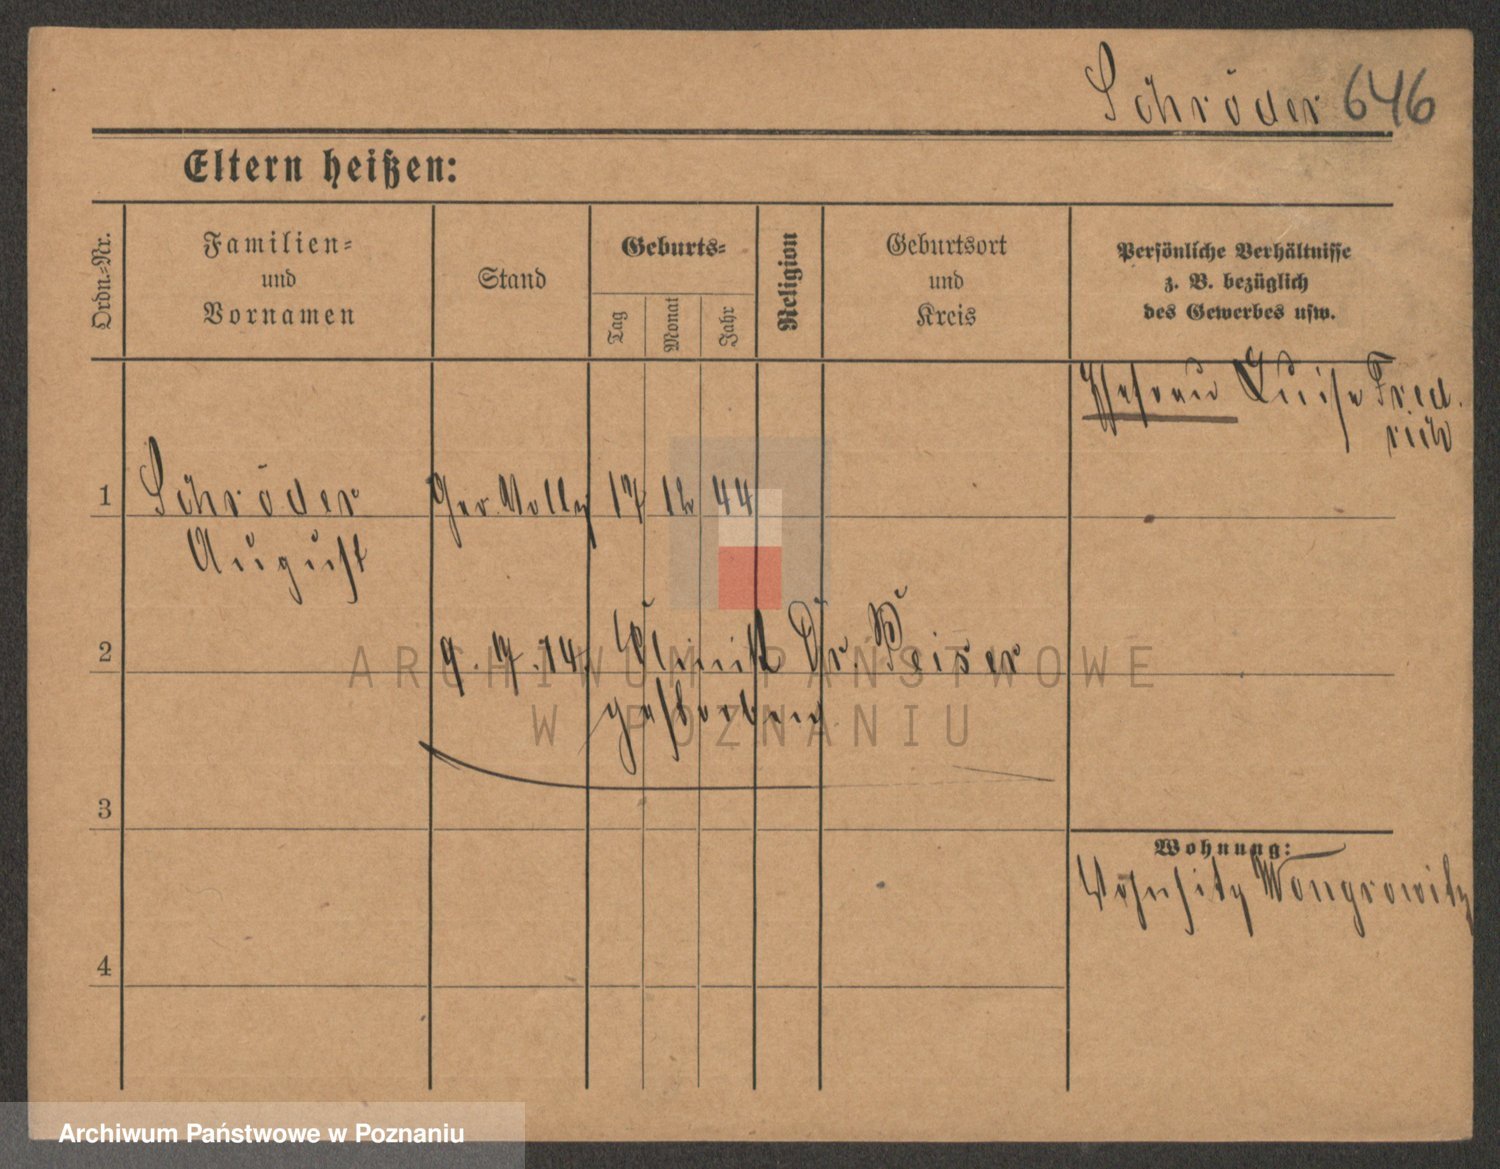 Schröder 646
Eltern heißen:
Ordn.-Nr.
Familien-
und
Vornamen
Stand
Geburts-
Tag
Monat
Jahr
Religion
Geburtsort
und
Kreis
Persönliche Verhältnisse
z. B. bezüglich
des Gewerbes usw.
Ehefrau Luise Fried
rich
1
Schröder Ger. Vollz 17 12 44
August
2
9. 7. 14. Klinik Dr. Peiser
gestorben
ARCHIWUM PAŃSTWOWE
W POZNANIU
3
Wohnung:
Wohnsitz Wongrowitz
4
Archiwum Państwowe w Poznaniu